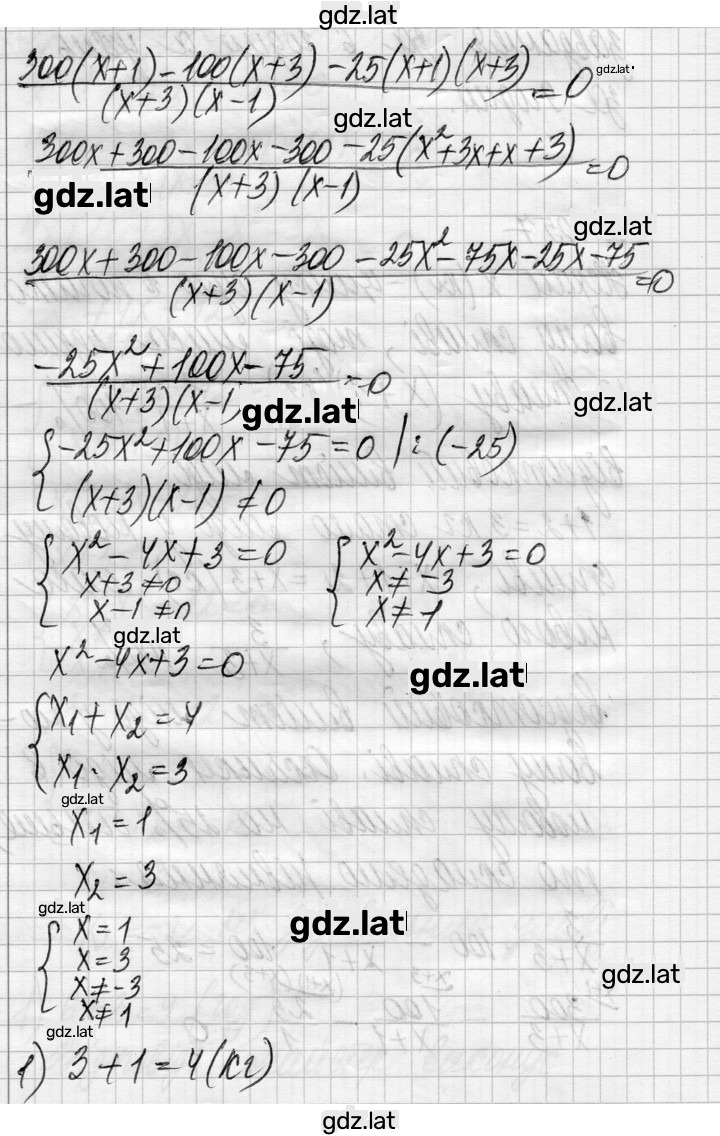 gdz.lat
300(x+1) - 100(x+3) - 25(x+1)(x+3)
(x+3)(x-1)
=0
gdz.lat
gdz.lat
300x+300-100x-300-25(x²+3x+x+3)
(x+3)(x-1)
=0
gdz.lat
gdz.lat
300x+300-100x-300-25x²-75x-25x-75
(x+3)(x-1)
=0
-25x²+100x-75
(x+3)(x-1
=0
gdz.lat
gdz.lat
{-25x²+100x-75=0 |:(-25)
(x+3)(x-1)≠0
{x²-4x+3=0 {x²-4x+3=0
x+3≠0 x≠-3
x-1≠0 x≠1
gdz.lat
x²-4x+3=0
gdz.lat
{x₁+x₂=4
x₁·x₂=3
gdz.lat
x₁=1
x₂=3
gdz.lat
gdz.lat
{x=1
x=3
x≠-3
x≠1
gdz.lat
gdz.lat
1) 3+1=4(кг)
gdz.lat